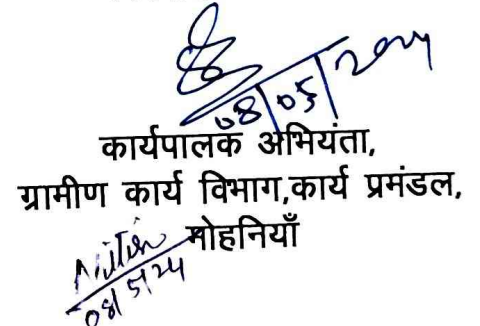 08/05/2024
कार्यपालक अभियंता,
ग्रामीण कार्य विभाग,कार्य प्रमंडल,
मोहनियाँ
Nitin
08/5/24